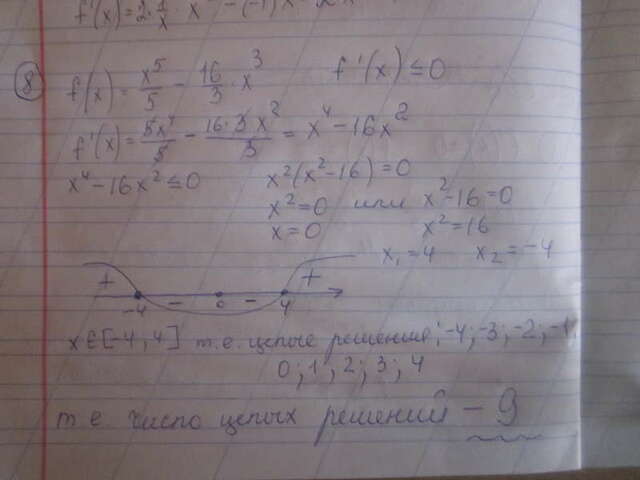 8
f(x) = x⁵/5 - 16/3 x³ f'(x) ≤ 0
f'(x) = 5x⁴/5 - 16·3x²/3 = x⁴ - 16x²
x⁴ - 16x² ≤ 0 x²(x² - 16) = 0
x² = 0 или x² - 16 = 0
x = 0 x² = 16
x₁ = 4 x₂ = -4
+ -4 - 0 - 4 +
x ∈ [-4, 4] т.е. целые решения; -4; -3; -2; -1;
0; 1; 2; 3; 4
т е число целых решений - 9